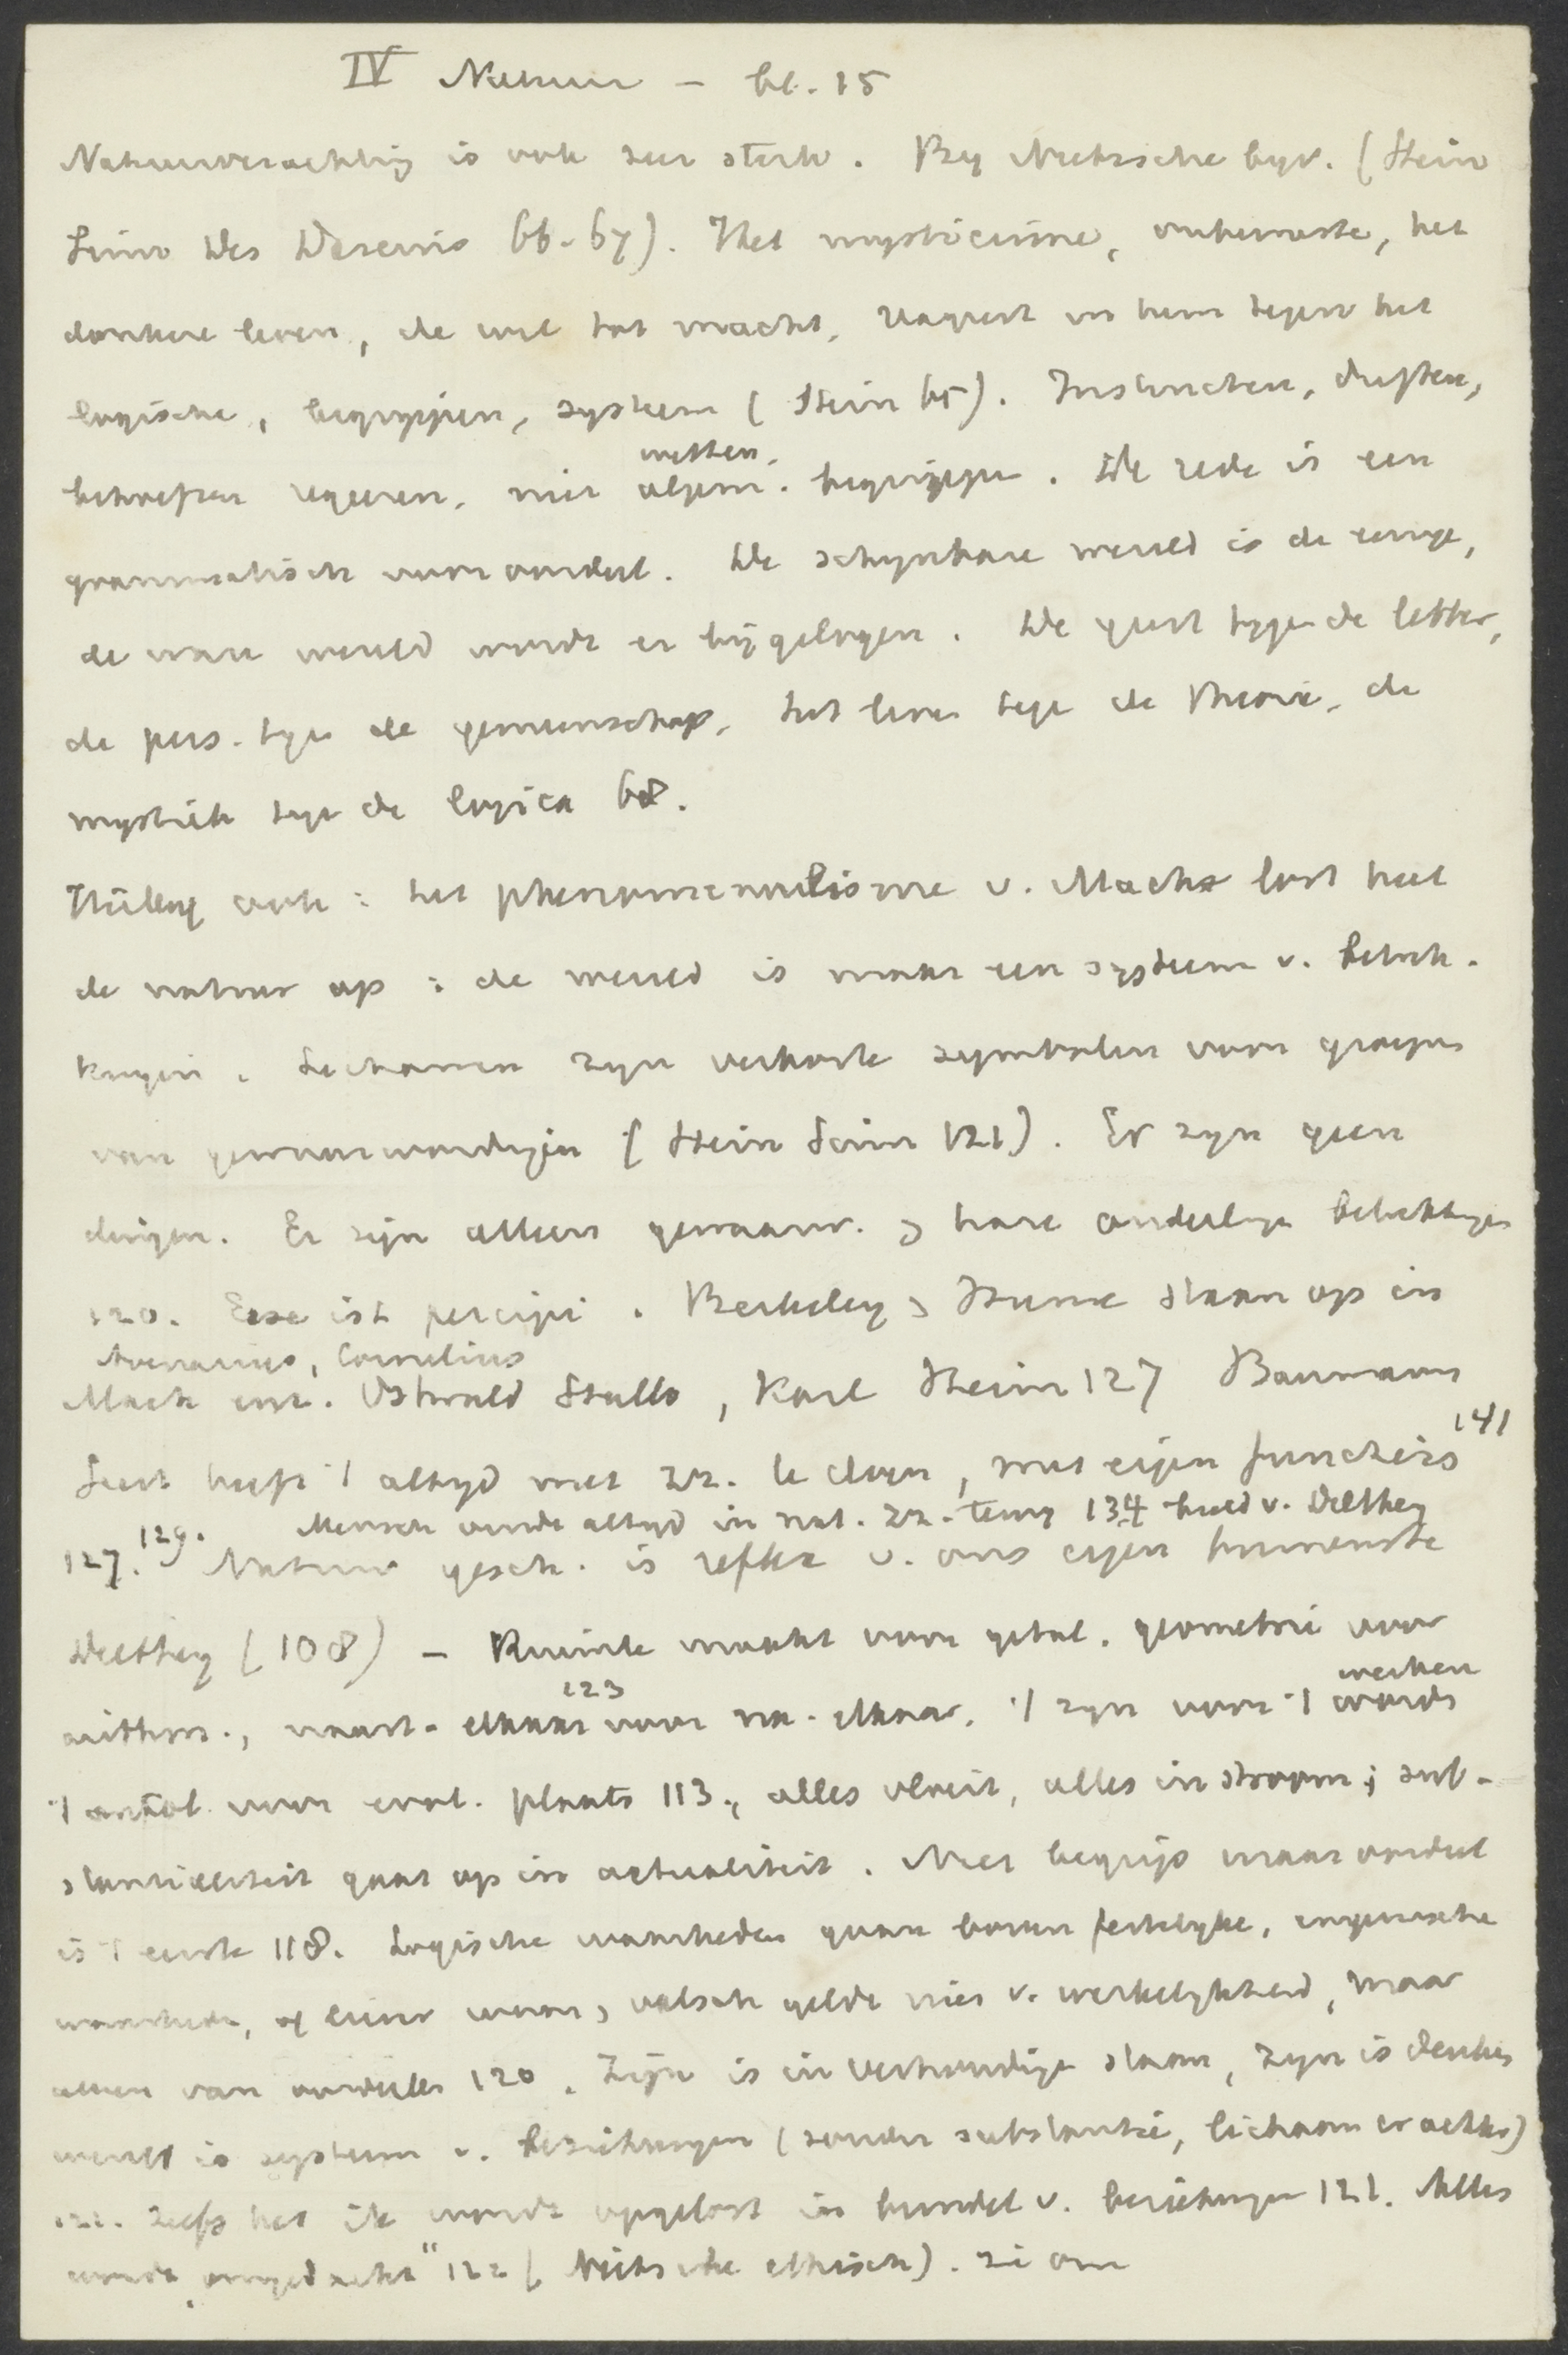 IV Natuur - bl. 15
Natuurverachting is ook zeer sterk. By Nietzsche byv. (Stein
Sinn des Daseins 66-67). Het mysticisme, onbewuste, het
donkere leven, de wil tot macht, reageert in hem tegen het
logische, begrippen, systeem (Stein 65). Instincten, driften,
behoeften regeeren, niet algem. wetten, begrippen. De rede is een
grammatisch vooroordeel. De schynbare wereld is de eenige,
de ware wereld wordt er bij gelogen. De geest tegen de letter,
de pers. tegen de gemeenschap, het leven tegen de theorie, de
mystiek tegen de logica 68.
ook: het phenomenalisme v. Mach lost heel
de natuur op: de wereld is maar een systeem v. betrek-
kingen. Lichamen zyn verkorte symbolen voor groepen
van gewaarwordingen (Stein Sinn 121). Er zyn geen
dingen. Er zijn alleen gewaarw. & hare onderlinge betrekkingen
120. Esse ist percipi. Berkeley & Hume staan op in
Avenarius, Cornelius
Mach enz. Ostwald Stallo, Karl Heim 127 Baumann
Geest heeft 't altyd met zz. te doen, met eigen functies 141
127. 129. Mensch vindt altyd in nat. zz. terug 134 beeld v. Dilthey
Natuur gesch. is reflex v. ons eigen binnenste
Dilthey (108) - Ruimte maakt voor getal, geometrie voor
arithm., naast-elkaar voor na-elkaar, 123 't zyn voor 't werken wordt
't voor evol. plaats 113., alles vloeit, alles in stroom; sub-
stantialiteit gaat op in actualiteit. Niet begrip maar oordeel
is 't eerste 118. Logische waarheden gaan boven feitelyke, empirische
waarheden, waar & valsch gelden niet v. werkelykheid, maar
alleen van oordeelen 120. Zijn is in verhoudingen staan, zyn is denken
wereld is systeem v. beziehungen (zonder substantie, lichaam erachter)
121. Zelfs het ik wordt opgelost in bundel v. beziehungen 121. Alles
wordt "omgedacht" 122 (Nietzsche ethisch). zie om